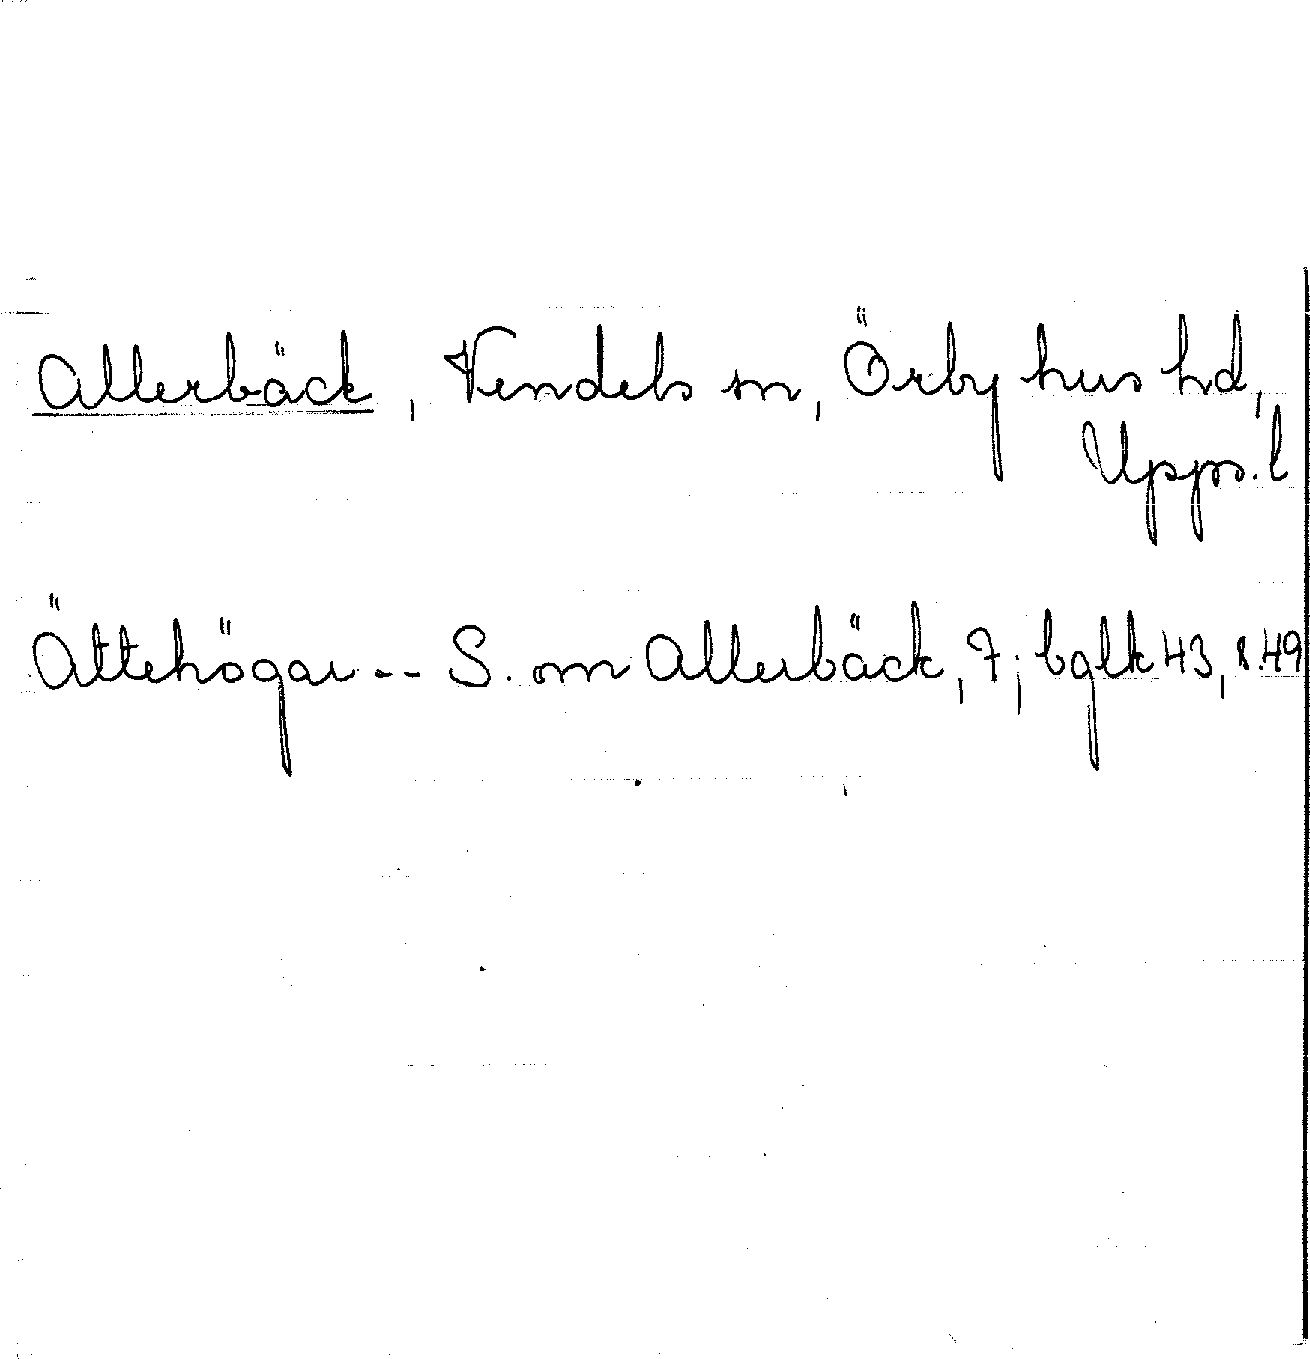 Allerbäck, Vendels sn, Örby hus hd,
Upps. l
Ättehögar -- S. om Allerbäck, 7; bglk 43, s. 49